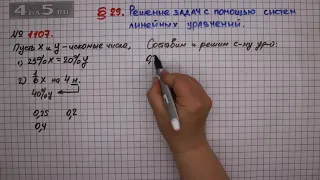 4PS.RU
§ 29. Решение задач с помощью систем
линейных уравнений.
№ 1107.
Пусть x и y – искомые числа,
1) 25% x = 20% y
2) 1/6 x на 4 м.
40% y
0,25 0,2
0,4
Составим и решим с-му ур-ю:
0,